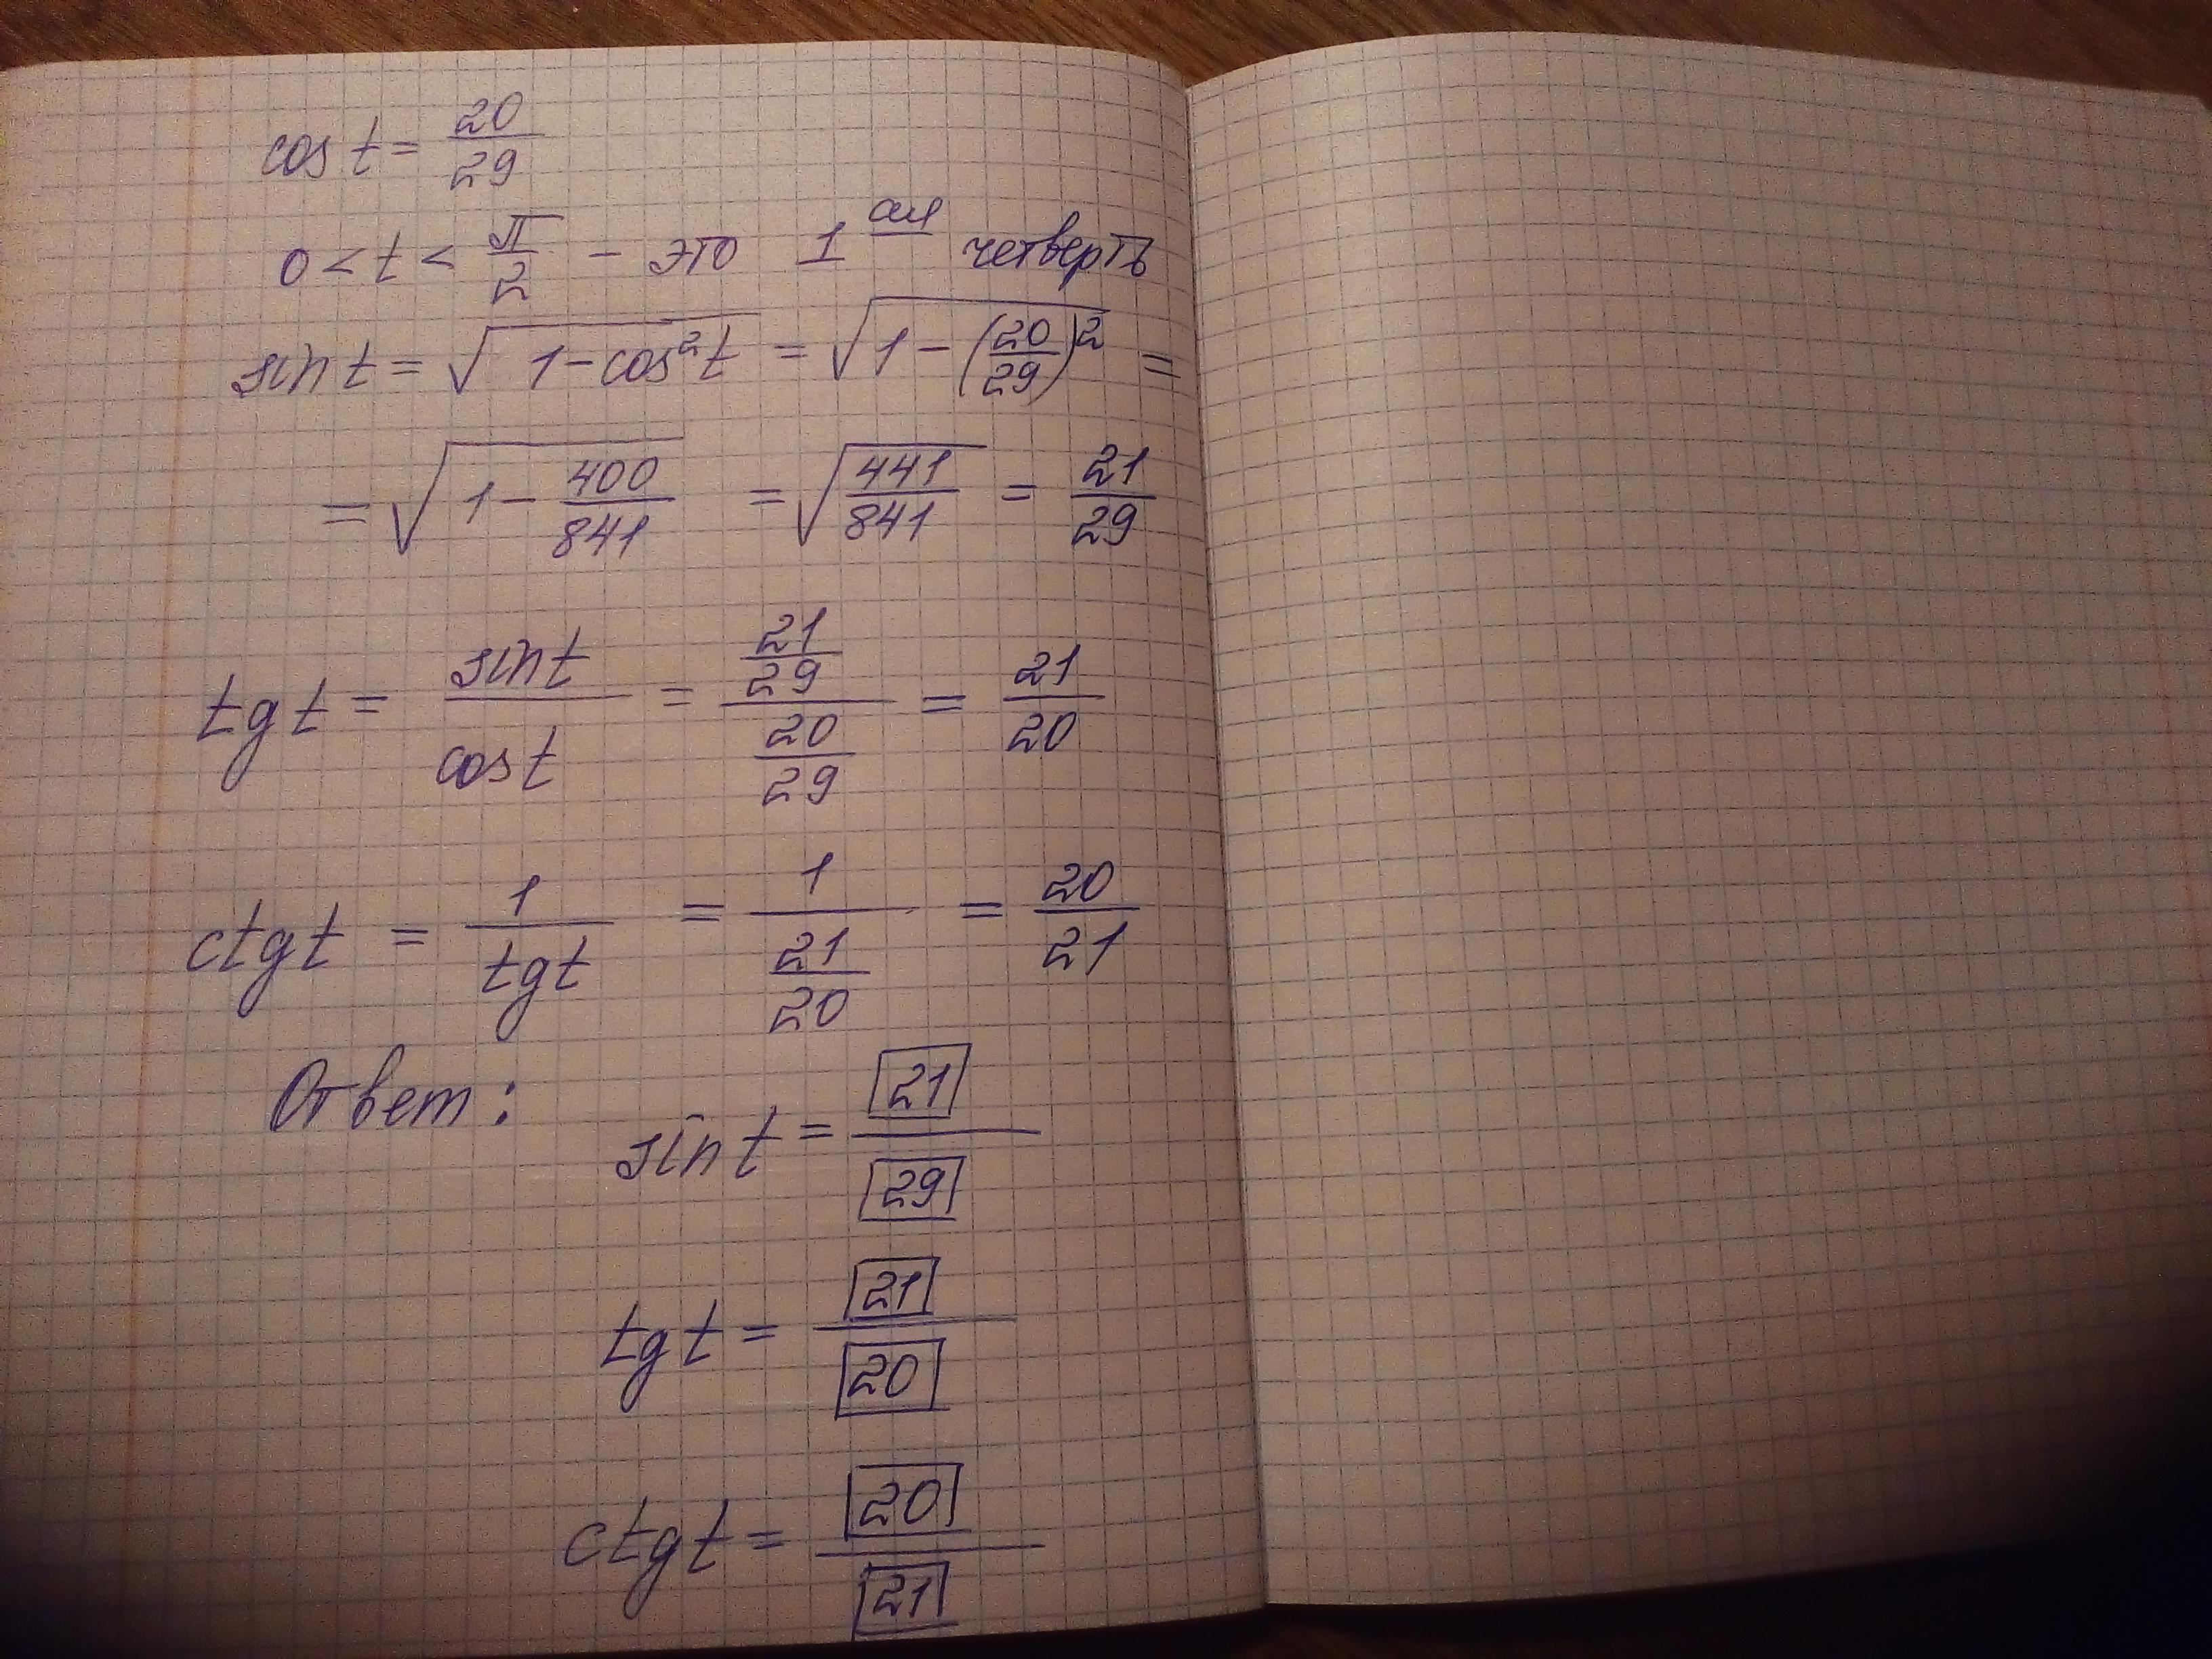 cos t = 20/29
0 < t < π/2 - это 1 ая четверть
sin t = √(1-cos²t) = √(1-(20/29)²) =
= √(1-400/841) = √(441/841) = 21/29
tg t = sin t/cos t = (21/29)/(20/29) = 21/20
ctg t = 1/tg t = 1/(21/20) = 20/21
Ответ:
sin t = 21/29
tg t = 21/20
ctg t = 20/21